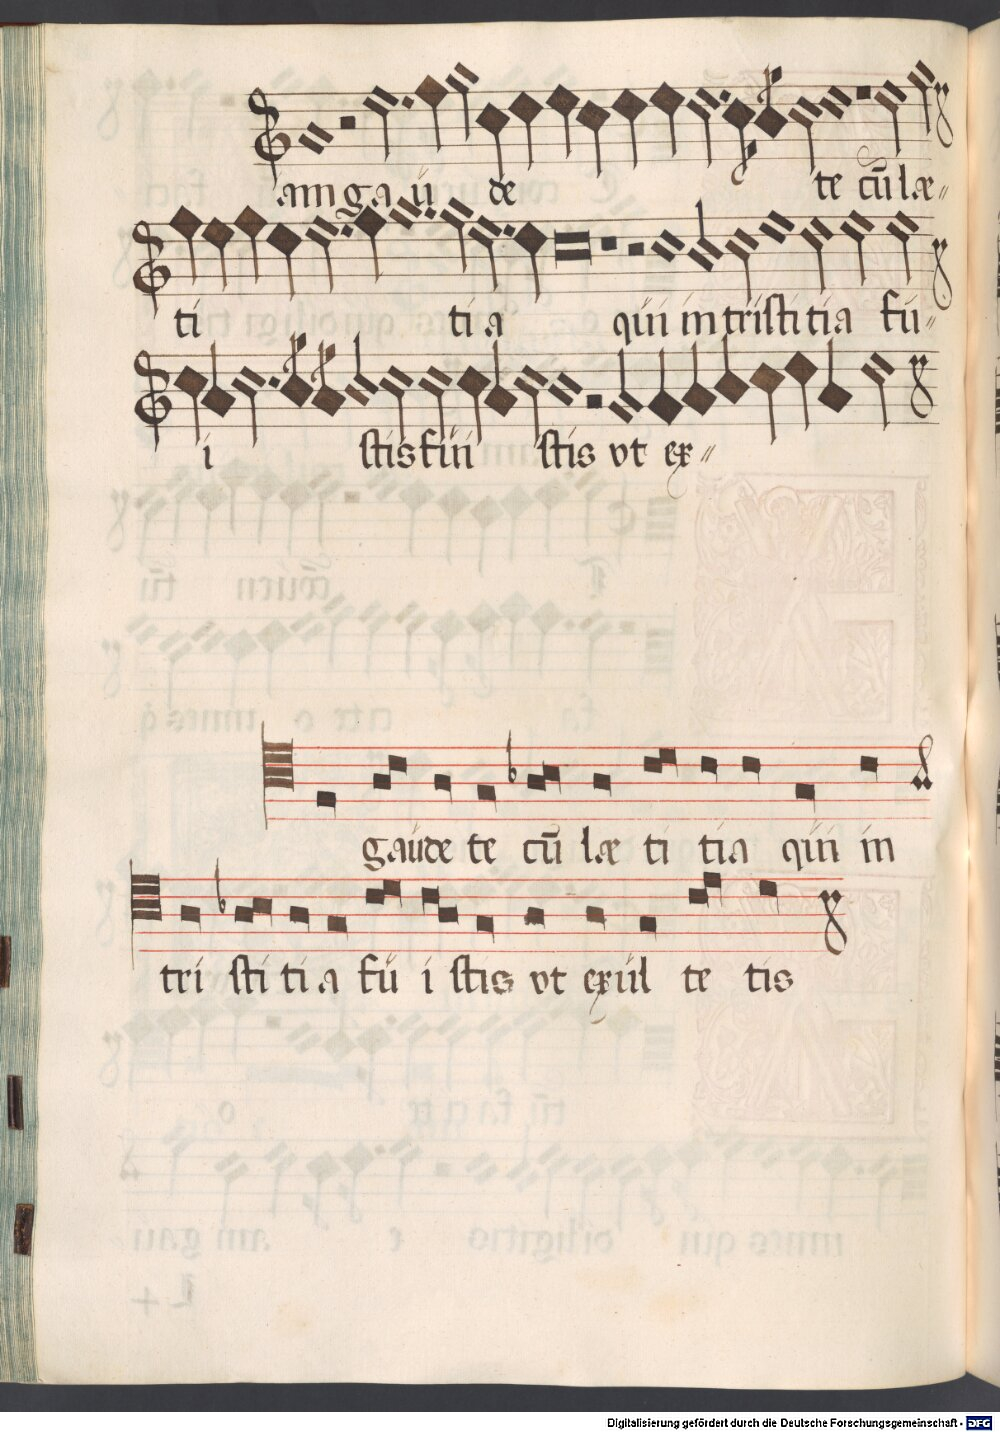 am ga ů de te cū læ
ti ti a qůi in tristi tia fů
i stis fůi stis vt ex
gaůde te cū læ ti tia qůi in
tri sti ti a fů i stis vt exůl te tis
Digitalisierung gefördert durch die Deutsche Forschungsgemeinschaft - DFG